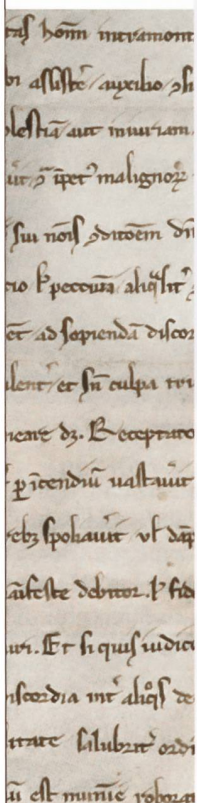 tas hom̄ intramont
bi assistē auxilio ꝯsi
lestiā aut iniuriam
ūit ꝯ̄ īpet᾿ malignoꝝ
sui nōis ꝯditōem dn̄
cio ł peccuīa aliqͣlit᾿
et ad sopiendā discor
lent᾿ et sn̄ culpa tru
neare dꝫ. Receptato
ꝑ īcendiū uastauit
ebꝫ spoliauit vl dāp
aīfeste debitor. ł fide
uri. Et si quis iudici
iscordia int᾿ aliqͦs de
itate salubrit᾿ ordi
ū est munīne roborat